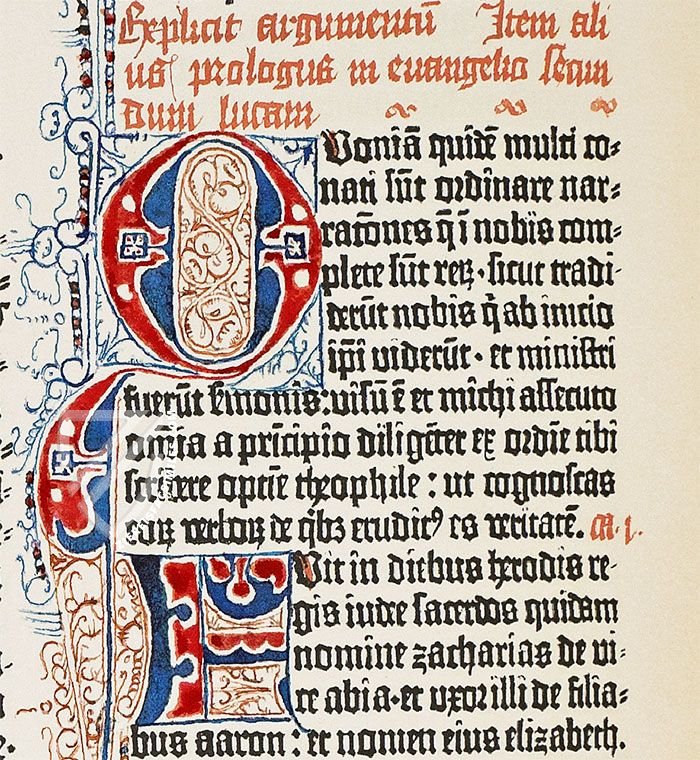 Explicit argumentū Item ali
us prologus in euangelio secun
dum lucam
Quoniā quidē multi co-
nati sūt ordinare nar-
rac̄ones q̄ ī nobis com-
plete sūt reꝝ · sicut tradi-
derūt nobis q̄ ab inicio
ip̄i viderūt · et ministri
fuerūt s̄monis : visū ē et michi assecuto
omīa a prīcipio diligēter ex ordīe tibi
scribere optīe theophile : ut cognoscas
eoꝝ verboꝝ de q̇bꝫ eruditꝰ es veritatē. ca. j.
Fuit in diebus herodis re-
gis iudee sacerdos quidam
nomine zacharias de vi-
ce abia · et uxor illi de filia-
bus aaron : et nomen eius elizabeth.